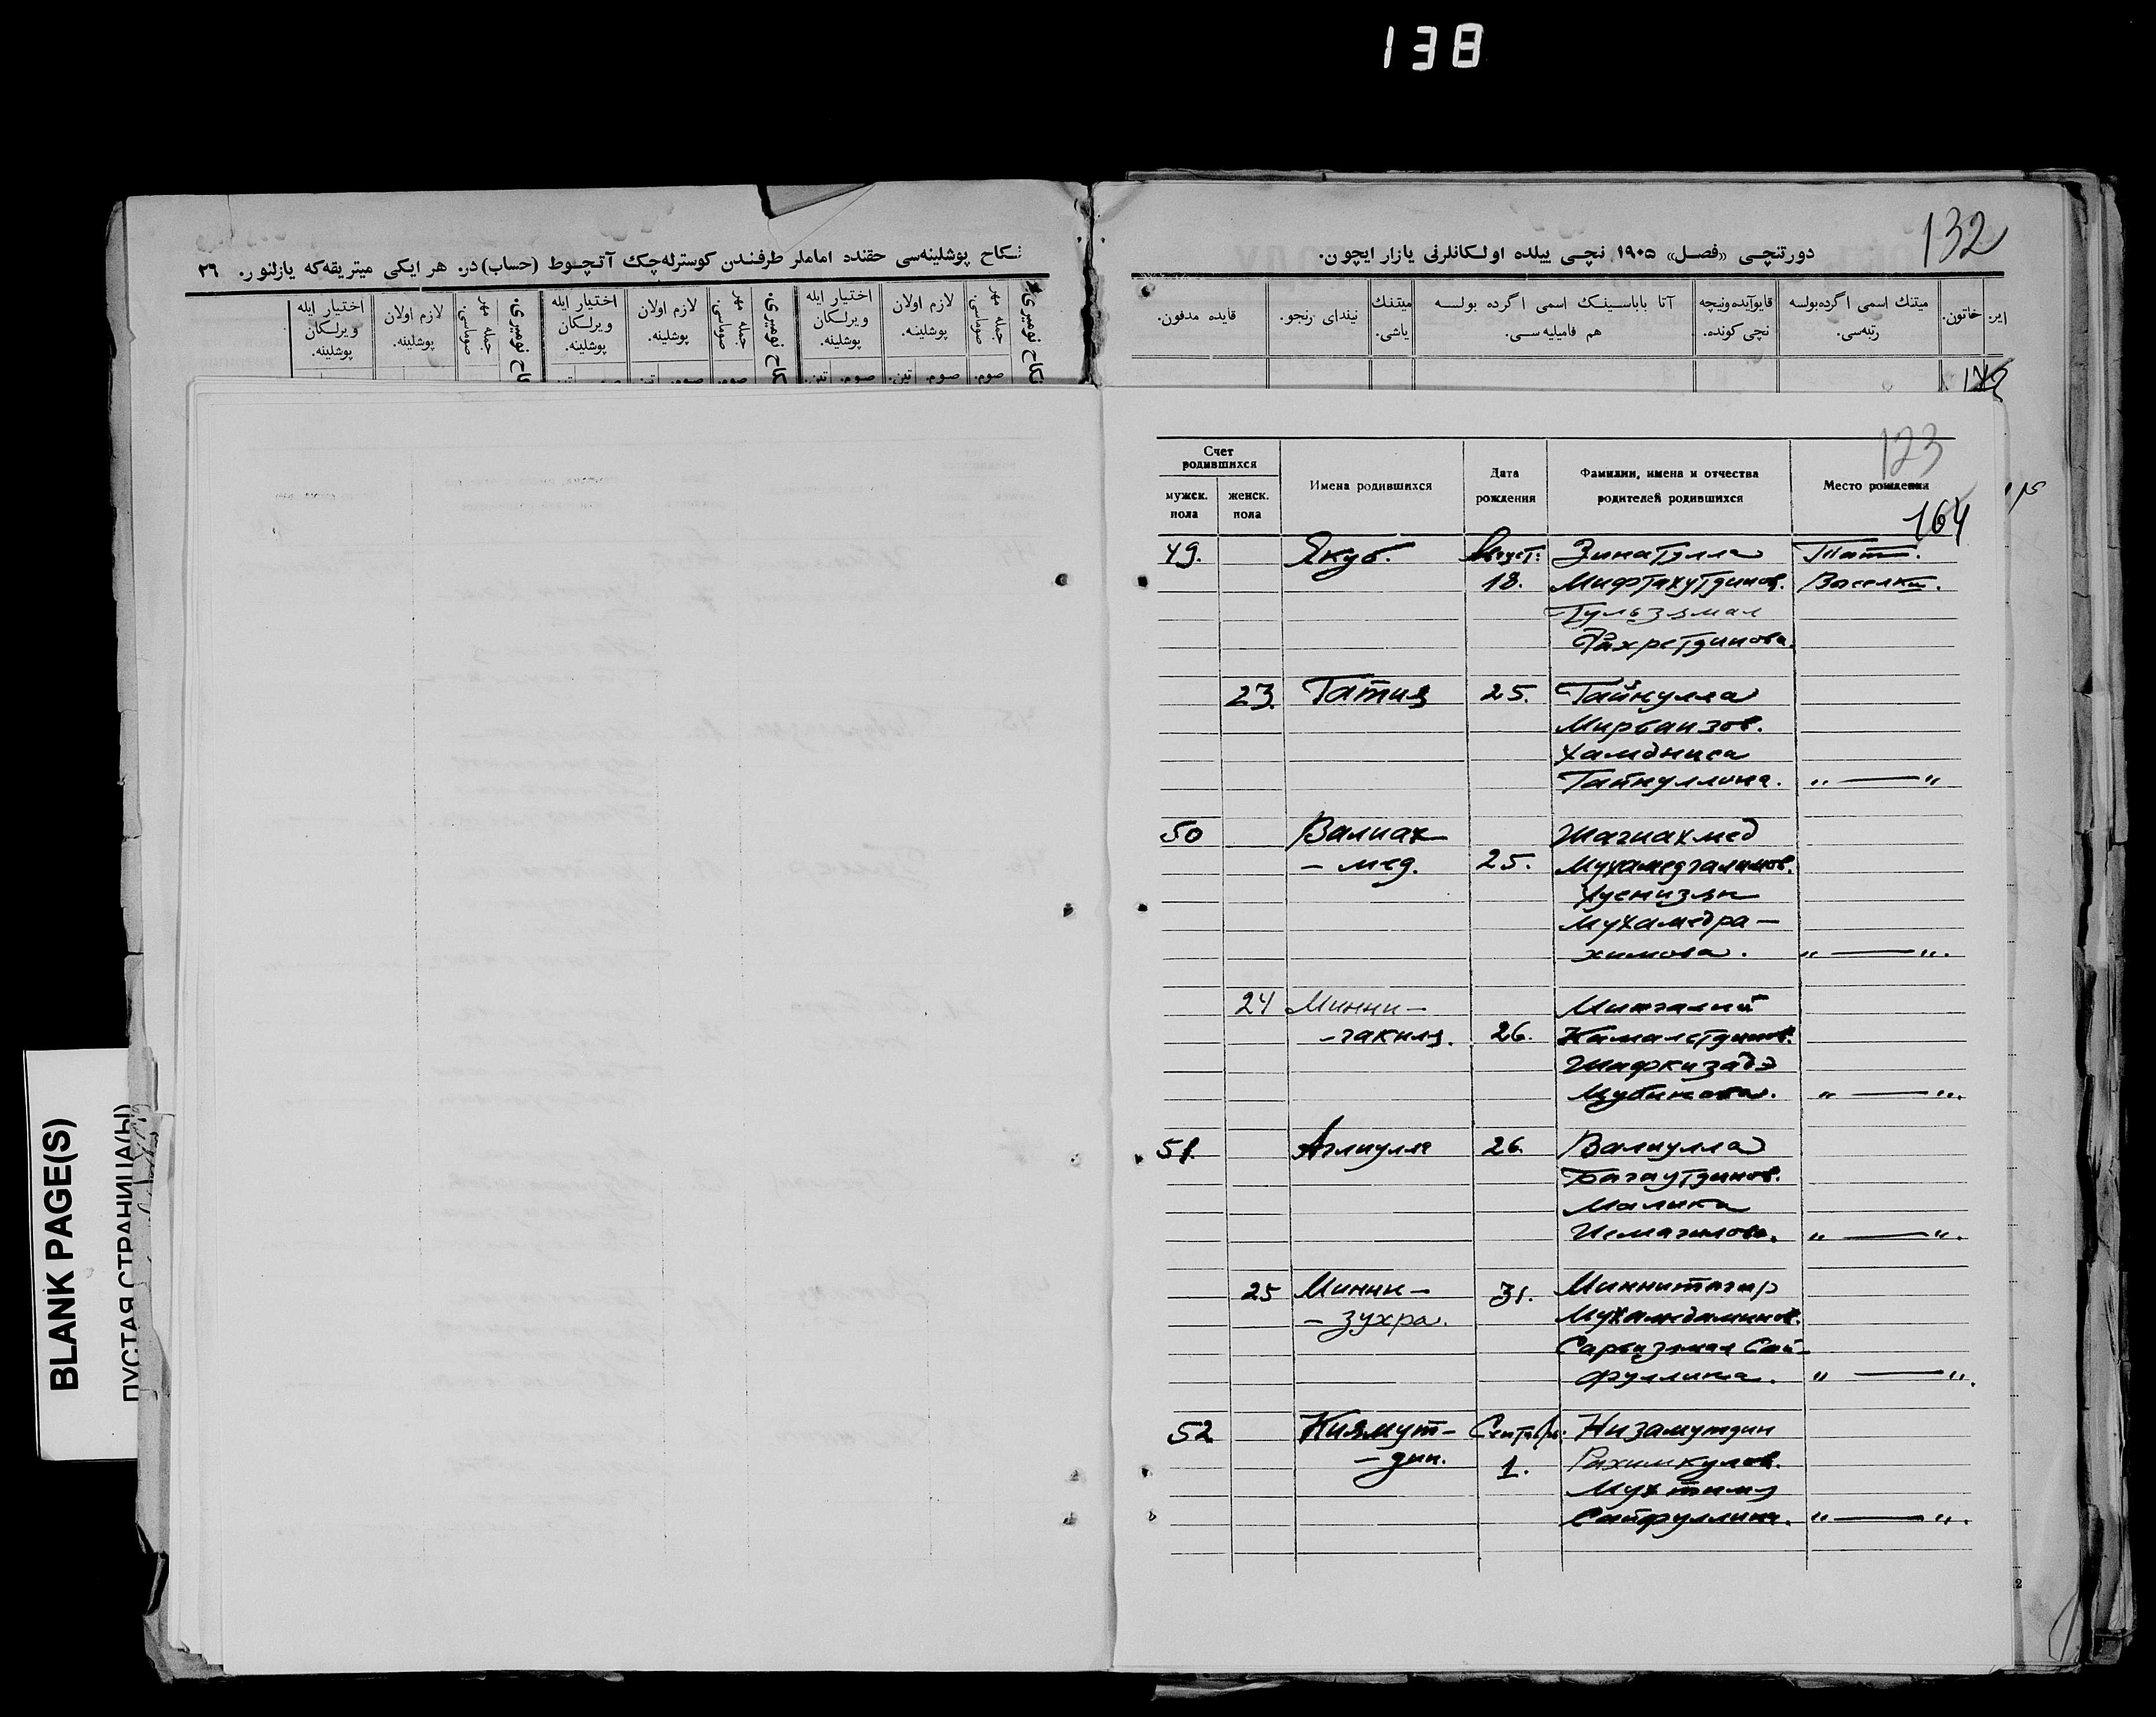 138
132
نكاح پوشلينه‌سى حقنده اماملر طرفندن كوسترله‌چك آتچوط (حساب) در. هر ايكى ميتريقه‌كه يازلنور. ٣٦
نكاح نوميرى.
جمله مهر صوماسى.
لازم اولان پوشلينه.
اختيار ايله ويرلكان پوشلينه.
نكاح نوميرى.
جمله مهر صوماسى.
لازم اولان پوشلينه.
اختيار ايله ويرلكان پوشلينه.
نكاح نوميرى.
جمله مهر صوماسى.
لازم اولان پوشلينه.
اختيار ايله ويرلكان پوشلينه.
صوم. صوم. تين. صوم. تين.
دورتنچى «فصل» ١٩٠٥ نچى ييلده اولكانلرنى يازار ايچون.
اير.
خاتون.
ميتنك اسمى اگرده بولسه رتبه‌سى.
قايوآيده ونيچه نچى كونده.
آتا باباسينك اسمى اگرده بولسه هم فاميليه‌سى.
ميتنك ياشى.
نينداى رنجو.
قايده مدفون.
123
Счет родившихся
мужск. пола
женск. пола
Имена родившихся
Дата рождения
Фамилии, имена и отчества родителей родившихся
Место рождения
164
49. Якуб. Август: Зинатулла Тат.
18. Мифтахутдинов. Выселки.
Гульзямал
Фахретдинова.
23. Гатия 25. Гайнулла
Мирваизов.
Хамдниса
Гайнуллина. „ — “
50 Валиах- Шагиахмед
- мед. 25. Мухамедгалимов.
Хуснизян
Мухамедра-
химова. „ — “.
24 Минни- Мингалий
- гакиля. 26. Камалетдинов.
Шафкизадэ
Мубинова. „ — “.
51. Аглиулла 26. Валиулла
Багаутдинов.
Малика
Исмагилова. „ — “.
25 Минни- 31. Миннитагир
- зухра. Мухамедаминов.
Сарвизямал Сай-
фуллина. „ — “.
52 Киямут- Сентябрь: Низамутдин
- дин. 1. Рахимкулов.
Мухтима
Сайфуллина. „ — “.
BLANK PAGE(S)
ПУСТАЯ СТРАНИЦА(Ы)